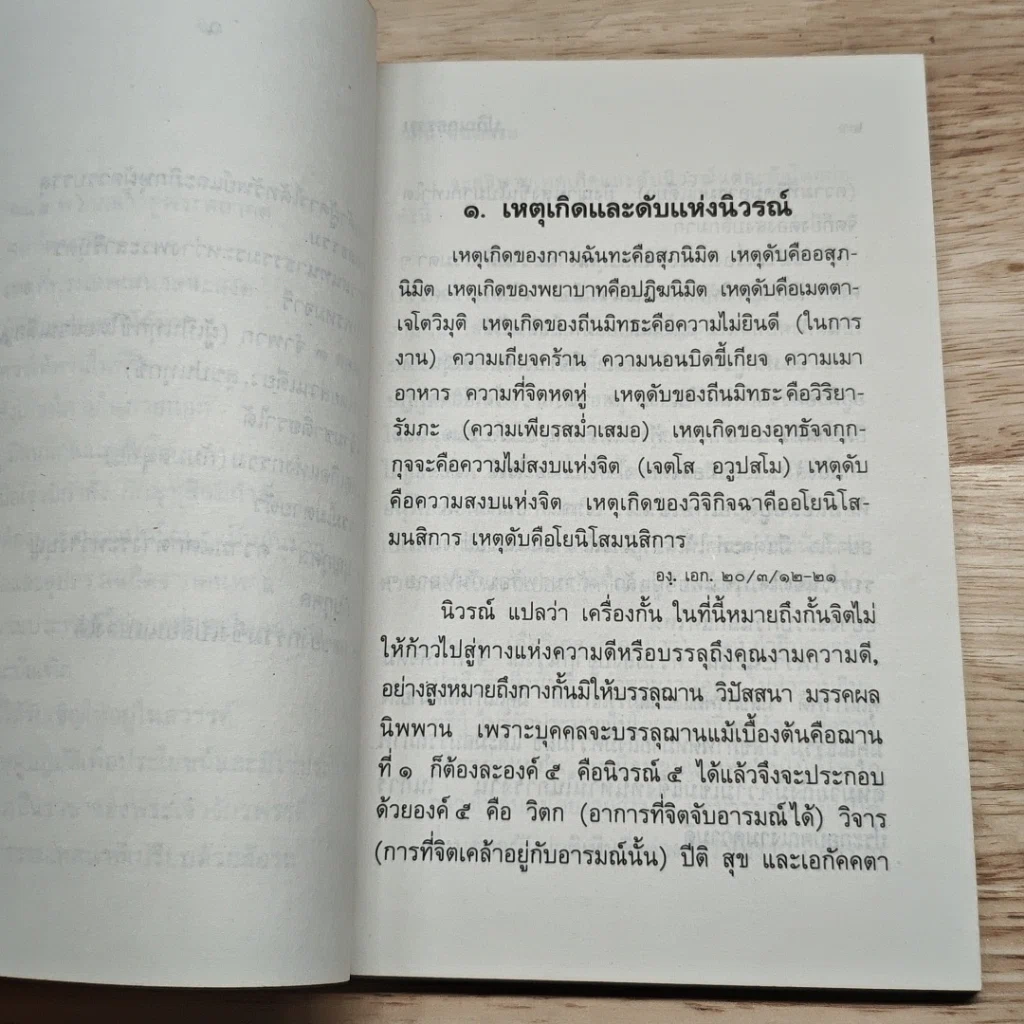 ๑. เหตุเกิดและดับแห่งนิวรณ์
เหตุเกิดของกามฉันทะคือสุภนิมิต เหตุดับคืออสุภ-
นิมิต เหตุเกิดของพยาบาทคือปฏิฆนิมิต เหตุดับคือเมตตา-
เจโตวิมุติ เหตุเกิดของถีนมิทธะคือความไม่ยินดี (ในการ
งาน) ความเกียจคร้าน ความนอนบิดขี้เกียจ ความเมา
อาหาร ความที่จิตหดหู่ เหตุดับของถีนมิทธะคือวิริยา-
รัมภะ (ความเพียรสม่ำเสมอ) เหตุเกิดของอุทธัจจกุก-
กุจจะคือความไม่สงบแห่งจิต (เจตโส อวูปสโม) เหตุดับ
คือความสงบแห่งจิต เหตุเกิดของวิจิกิจฉาคืออโยนิโส-
มนสิการ เหตุดับคือโยนิโสมนสิการ
องฺ. เอก. ๒๐/๓/๑๒-๒๑
นิวรณ์ แปลว่า เครื่องกั้น ในที่นี้หมายถึงกั้นจิตไม่
ให้ก้าวไปสู่ทางแห่งความดีหรือบรรลุถึงคุณงามความดี,
อย่างสูงหมายถึงกางกั้นมิให้บรรลุฌาน วิปัสสนา มรรคผล
นิพพาน เพราะบุคคลจะบรรลุฌานแม้เบื้องต้นคือฌาน
ที่ ๑ ก็ต้องละองค์ ๕ คือนิวรณ์ ๕ ได้แล้วจึงจะประกอบ
ด้วยองค์ ๕ คือ วิตก (อาการที่จิตจับอารมณ์ได้) วิจาร
(การที่จิตเคล้าอยู่กับอารมณ์นั้น) ปีติ สุข และเอกัคคตา